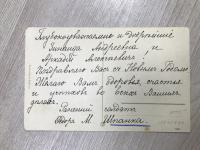 Глубокоуважаемые и дорогие
Зинаида Андреевна и
Аркадий Алексеевич!
Поздравляю Вас с Новым Годом
Желаю Вам здоровья, счастья
и успехов во всех Ваших
делах.
М. Шпанка